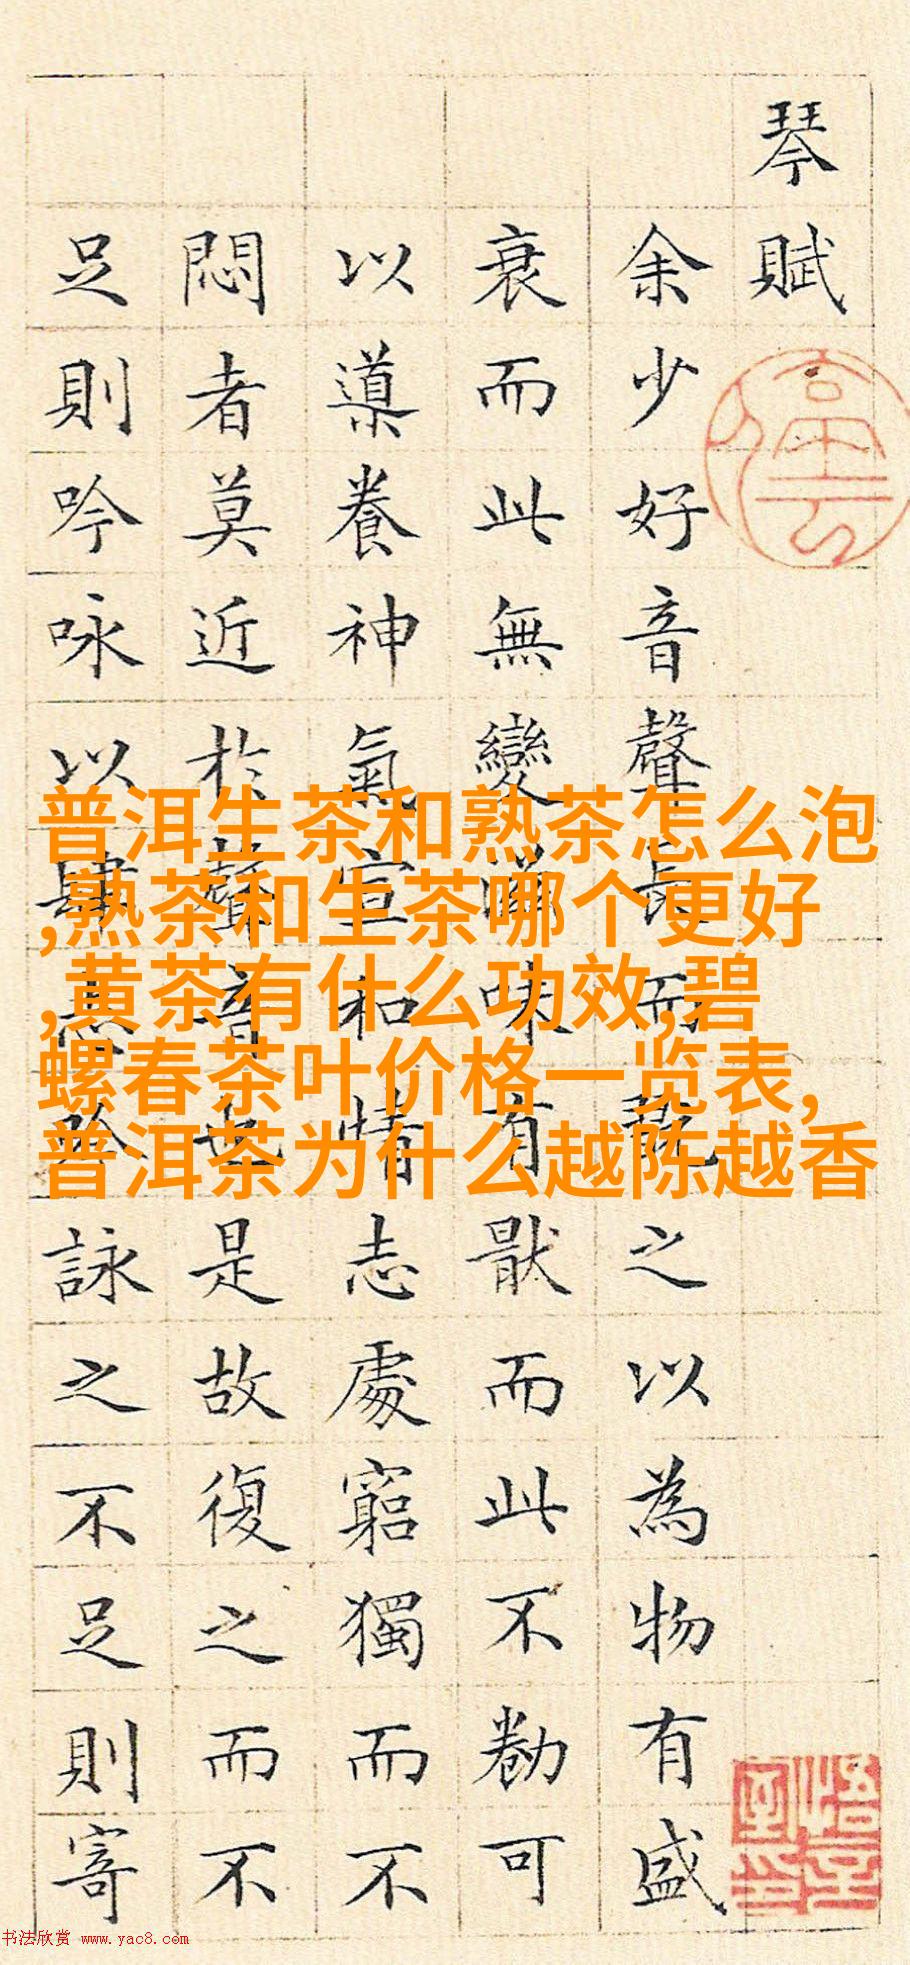 琴賦
余少好音聲長而翫之以為物有盛
衰而此無變滋味有猒而此不勌可
以導養神氣宣和情志處窮獨而不
悶者莫近於聲音也是故復之而不
足則吟咏以肆志吟詠之不足則寄
普洱生茶和熟茶怎么泡
,熟茶和生茶哪个更好
,黄茶有什么功效,碧
螺春茶叶价格一览表,
普洱茶为什么越陈越香
书法欣赏 www.yac8.com